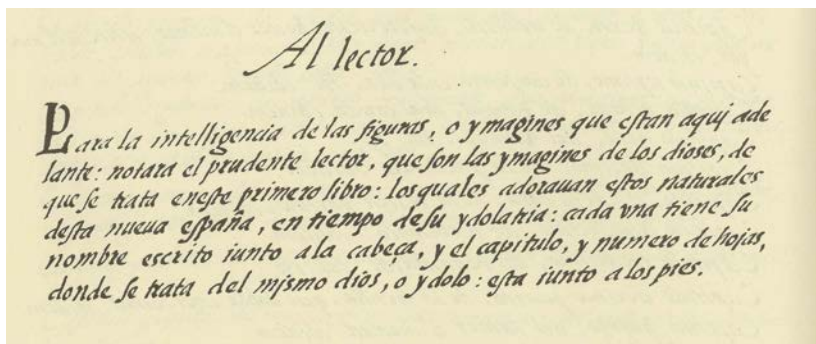 Al lector.
Para la intelligencia de las figuras, o ymagines que estan aquj ade
lante: notara el prudente lector, que son las ymagines de los dioses, de
que se trata eneste primero libro: los quales adorauan estos naturales
desta nueua españa, en tiempo de su ydolatria: cada vna tiene su
nombre escrito iunto ala cabeça, y el capitulo, y numero de hojas,
donde se trata del mjsmo dios, o ydolo: esta iunto a los pies.